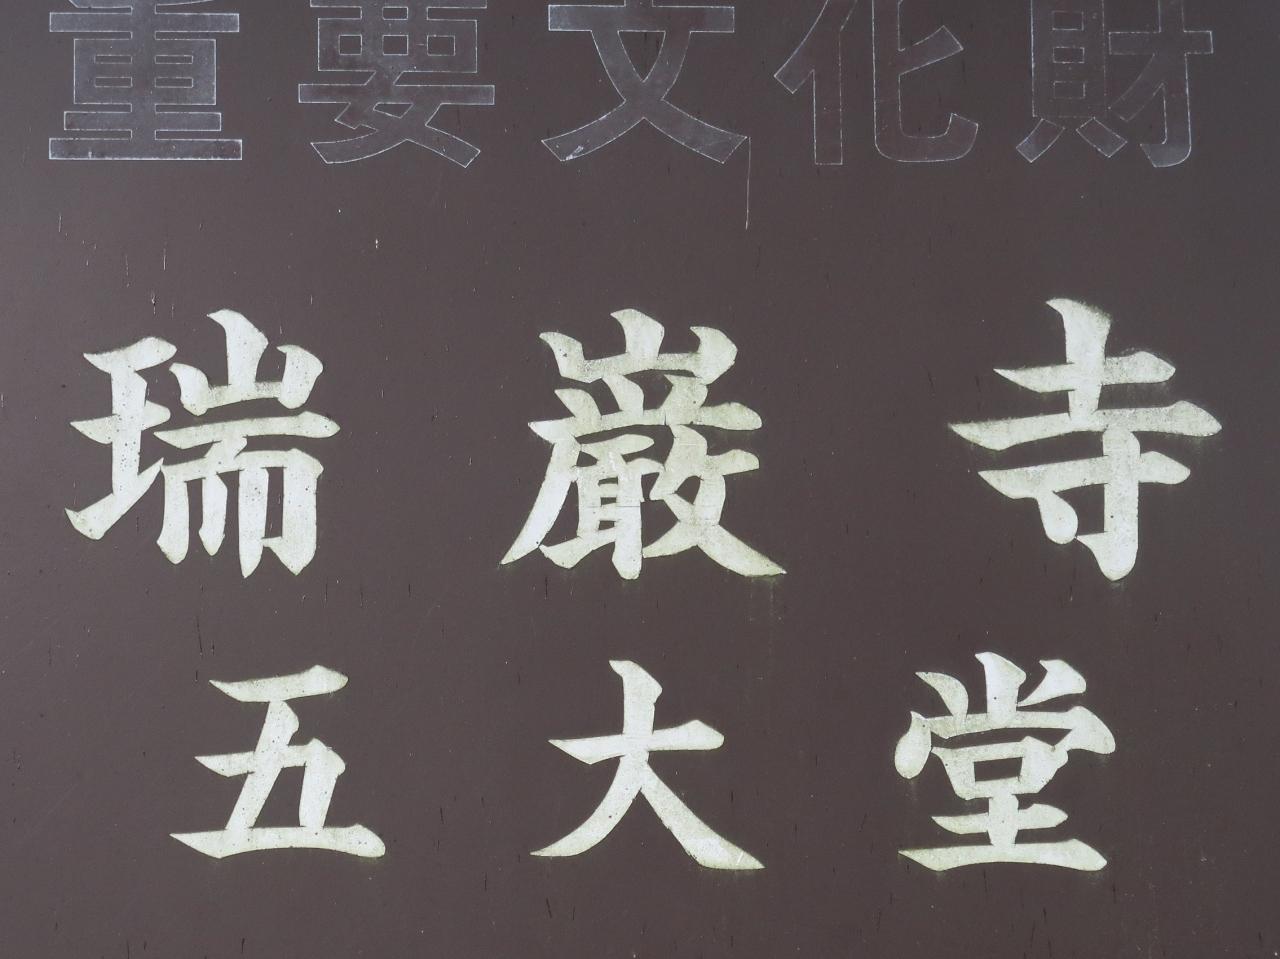 重要文化財
瑞巌寺
五大堂